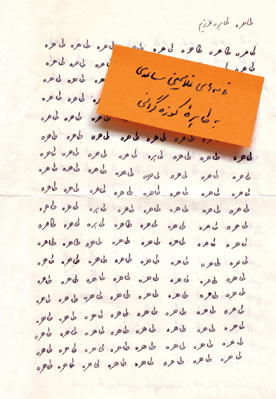 طاهره طاهره عزیزم
طاهره طاهره طاهره طاهره طاهره طاهره طاهره طاهره طاهره
نامه‌های غلامحسین ساعدی
به طاهره کوزه‌گرانی
طاهره طاهره طاهره
طاهره طاهره طاهره
طاهره طاهره
طاهره طاهره
طاهره طاهره طاهره طاهره طاهره
طاهره طاهره طاهره طاهره طاهره طاهره طاهره طاهره طاهره
طاهره طاهره طاهره طاهره طاهره طاهره طاهره طاهره طاهره
طاهره طاهره طاهره طاهره طاهره طاهره طاهره طاهره طاهره
طاهره طاهره طاهره طاهره طاهره طاهره طاهره طاهره طاهره
طاهره طاهره طاهره طاهره طاهره طاهره طاهره طاهره طاهره
طاهره طاهره طاهره طاهره طاهره طاهره طاهره طاهره طاهره
طاهره طاهره طاهره طاهره طاهره طاهره طاهره طاهره طاهره
طاهره طاهره طاهره طاهره طاهره طاهره طاهره طاهره طاهره
طاهره طاهره طاهره طاهره طاهره طاهره طاهره طاهره طاهره
طاهره طاهره طاهره طاهره طاهره طاهره طاهره طاهره طاهره
طاهره طاهره طاهره طاهره طاهره طاهره طاهره طاهره طاهره
طاهره طاهره طاهره طاهره طاهره طاهره طاهره طاهره طاهره
طاهره طاهره طاهره طاهره طاهره طاهره طاهره طاهره طاهره